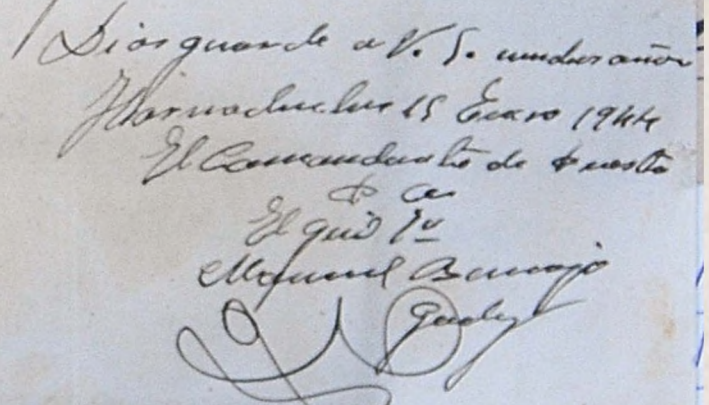 Dios guarde a V. S. muchos años
Hornachuelos 15 Enero 1944
El Comandante de Puesto
P. A.
El Gud 1º
Manuel Bermejo
Godoy